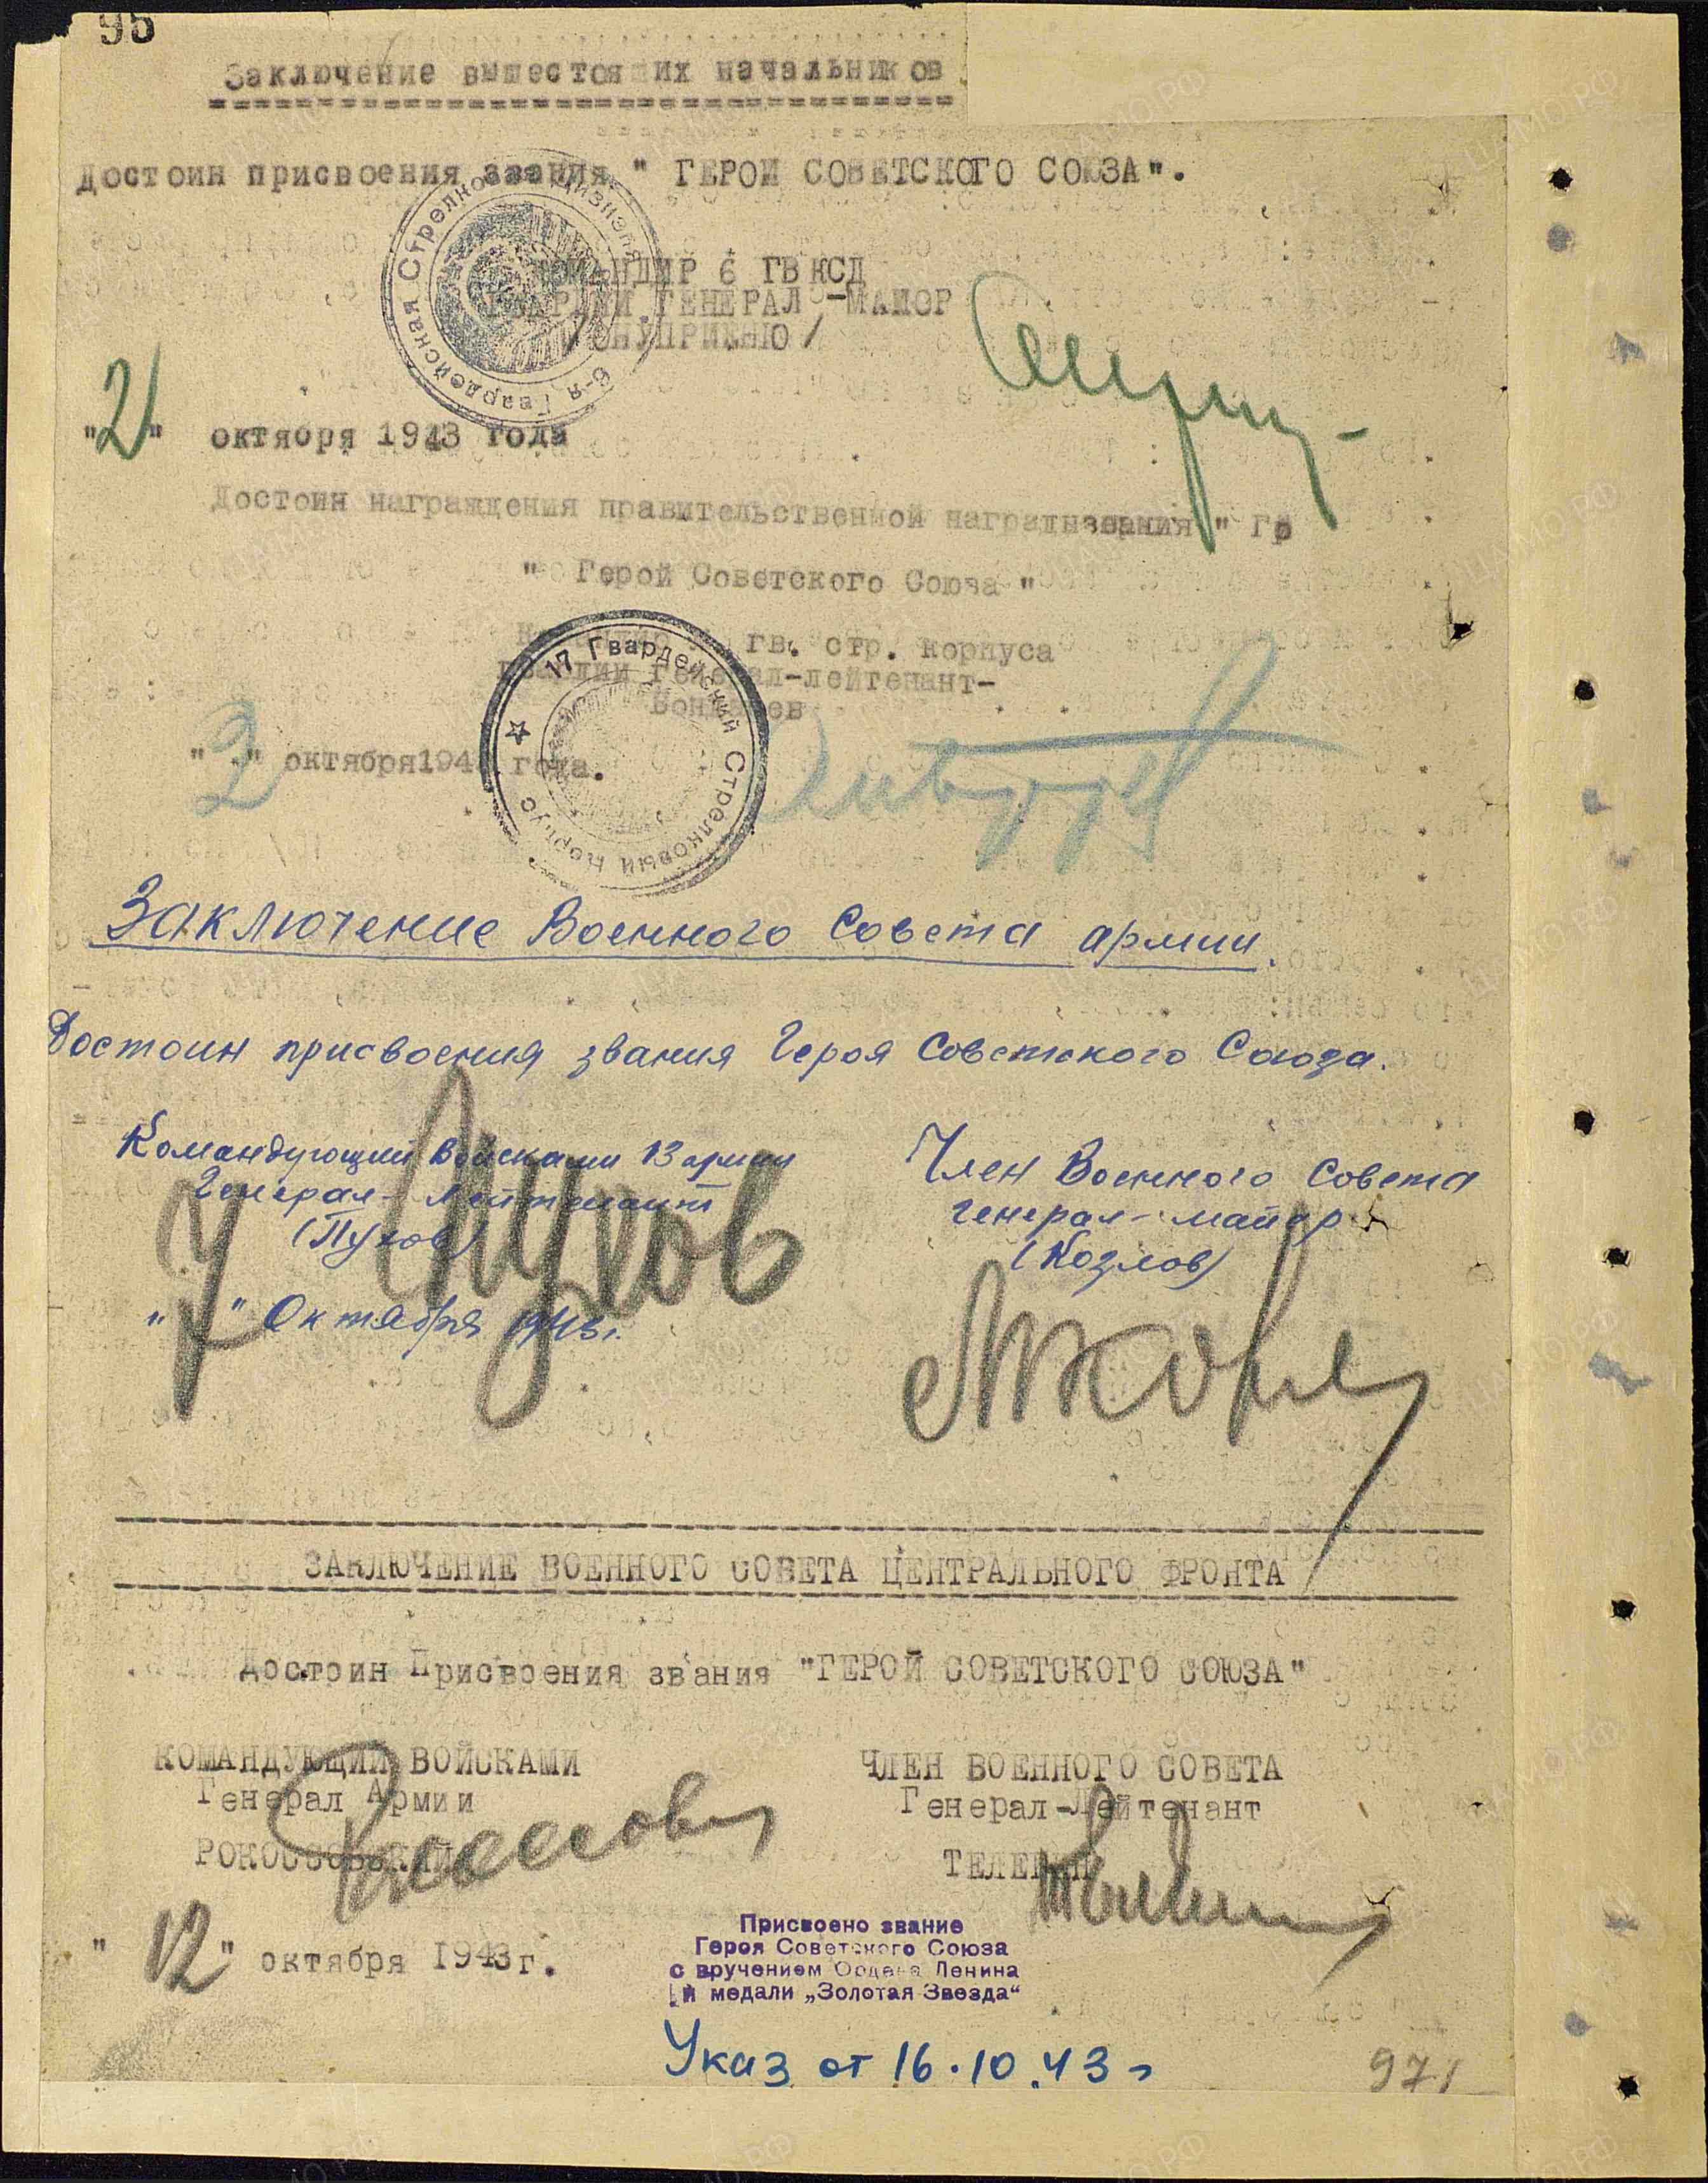 95
Заключение вышестоящих начальников
Достоин присвоения звания " ГЕРОЙ СОВЕТСКОГО СОЮЗА".
6-я Гвардейская Стрелковая Дивизия
КОМАНДИР 6 ГВ КСД
ГВАРДИИ ГЕНЕРАЛ -МАЙОР
/ОНУПРИЕНКО/
"2" октября 1943 года
Достоин награждения правительственной наградызвания " Гр
" Герой Советского Союза "
17 Гвардейский Стрелковый Корпус
гв. стр. корпуса
Гвардии Генерал-лейтенант-
Бондарев
"2" октября194 года.
Заключение Военного Совета армии.
Достоин присвоения звания Героя Советского Союза.
Командующий войсками 13 армии
Генерал-лейтенант
(Пухов)
Пухов
"7" Октября 1943г.
Член Военного Совета
генерал-майор
(Козлов)
ЗАКЛЮЧЕНИЕ ВОЕННОГО СОВЕТА ЦЕНТРАЛЬНОГО ФРОНТА
Достоин Присвоения звания "ГЕРОЙ СОВЕТСКОГО СОЮЗА"
КОМАНДУЮЩИЙ ВОЙСКАМИ
Генерал Армии
РОКОССОВСКИЙ
ЧЛЕН ВОЕННОГО СОВЕТА
Генерал-Лейтенант
ТЕЛЕГИН
"12" октября 1943г.
Присвоено звание
Героя Советского Союза
с вручением Ордена Ленина
и медали „Золотая Звезда“
Указ от 16.10.43г
971